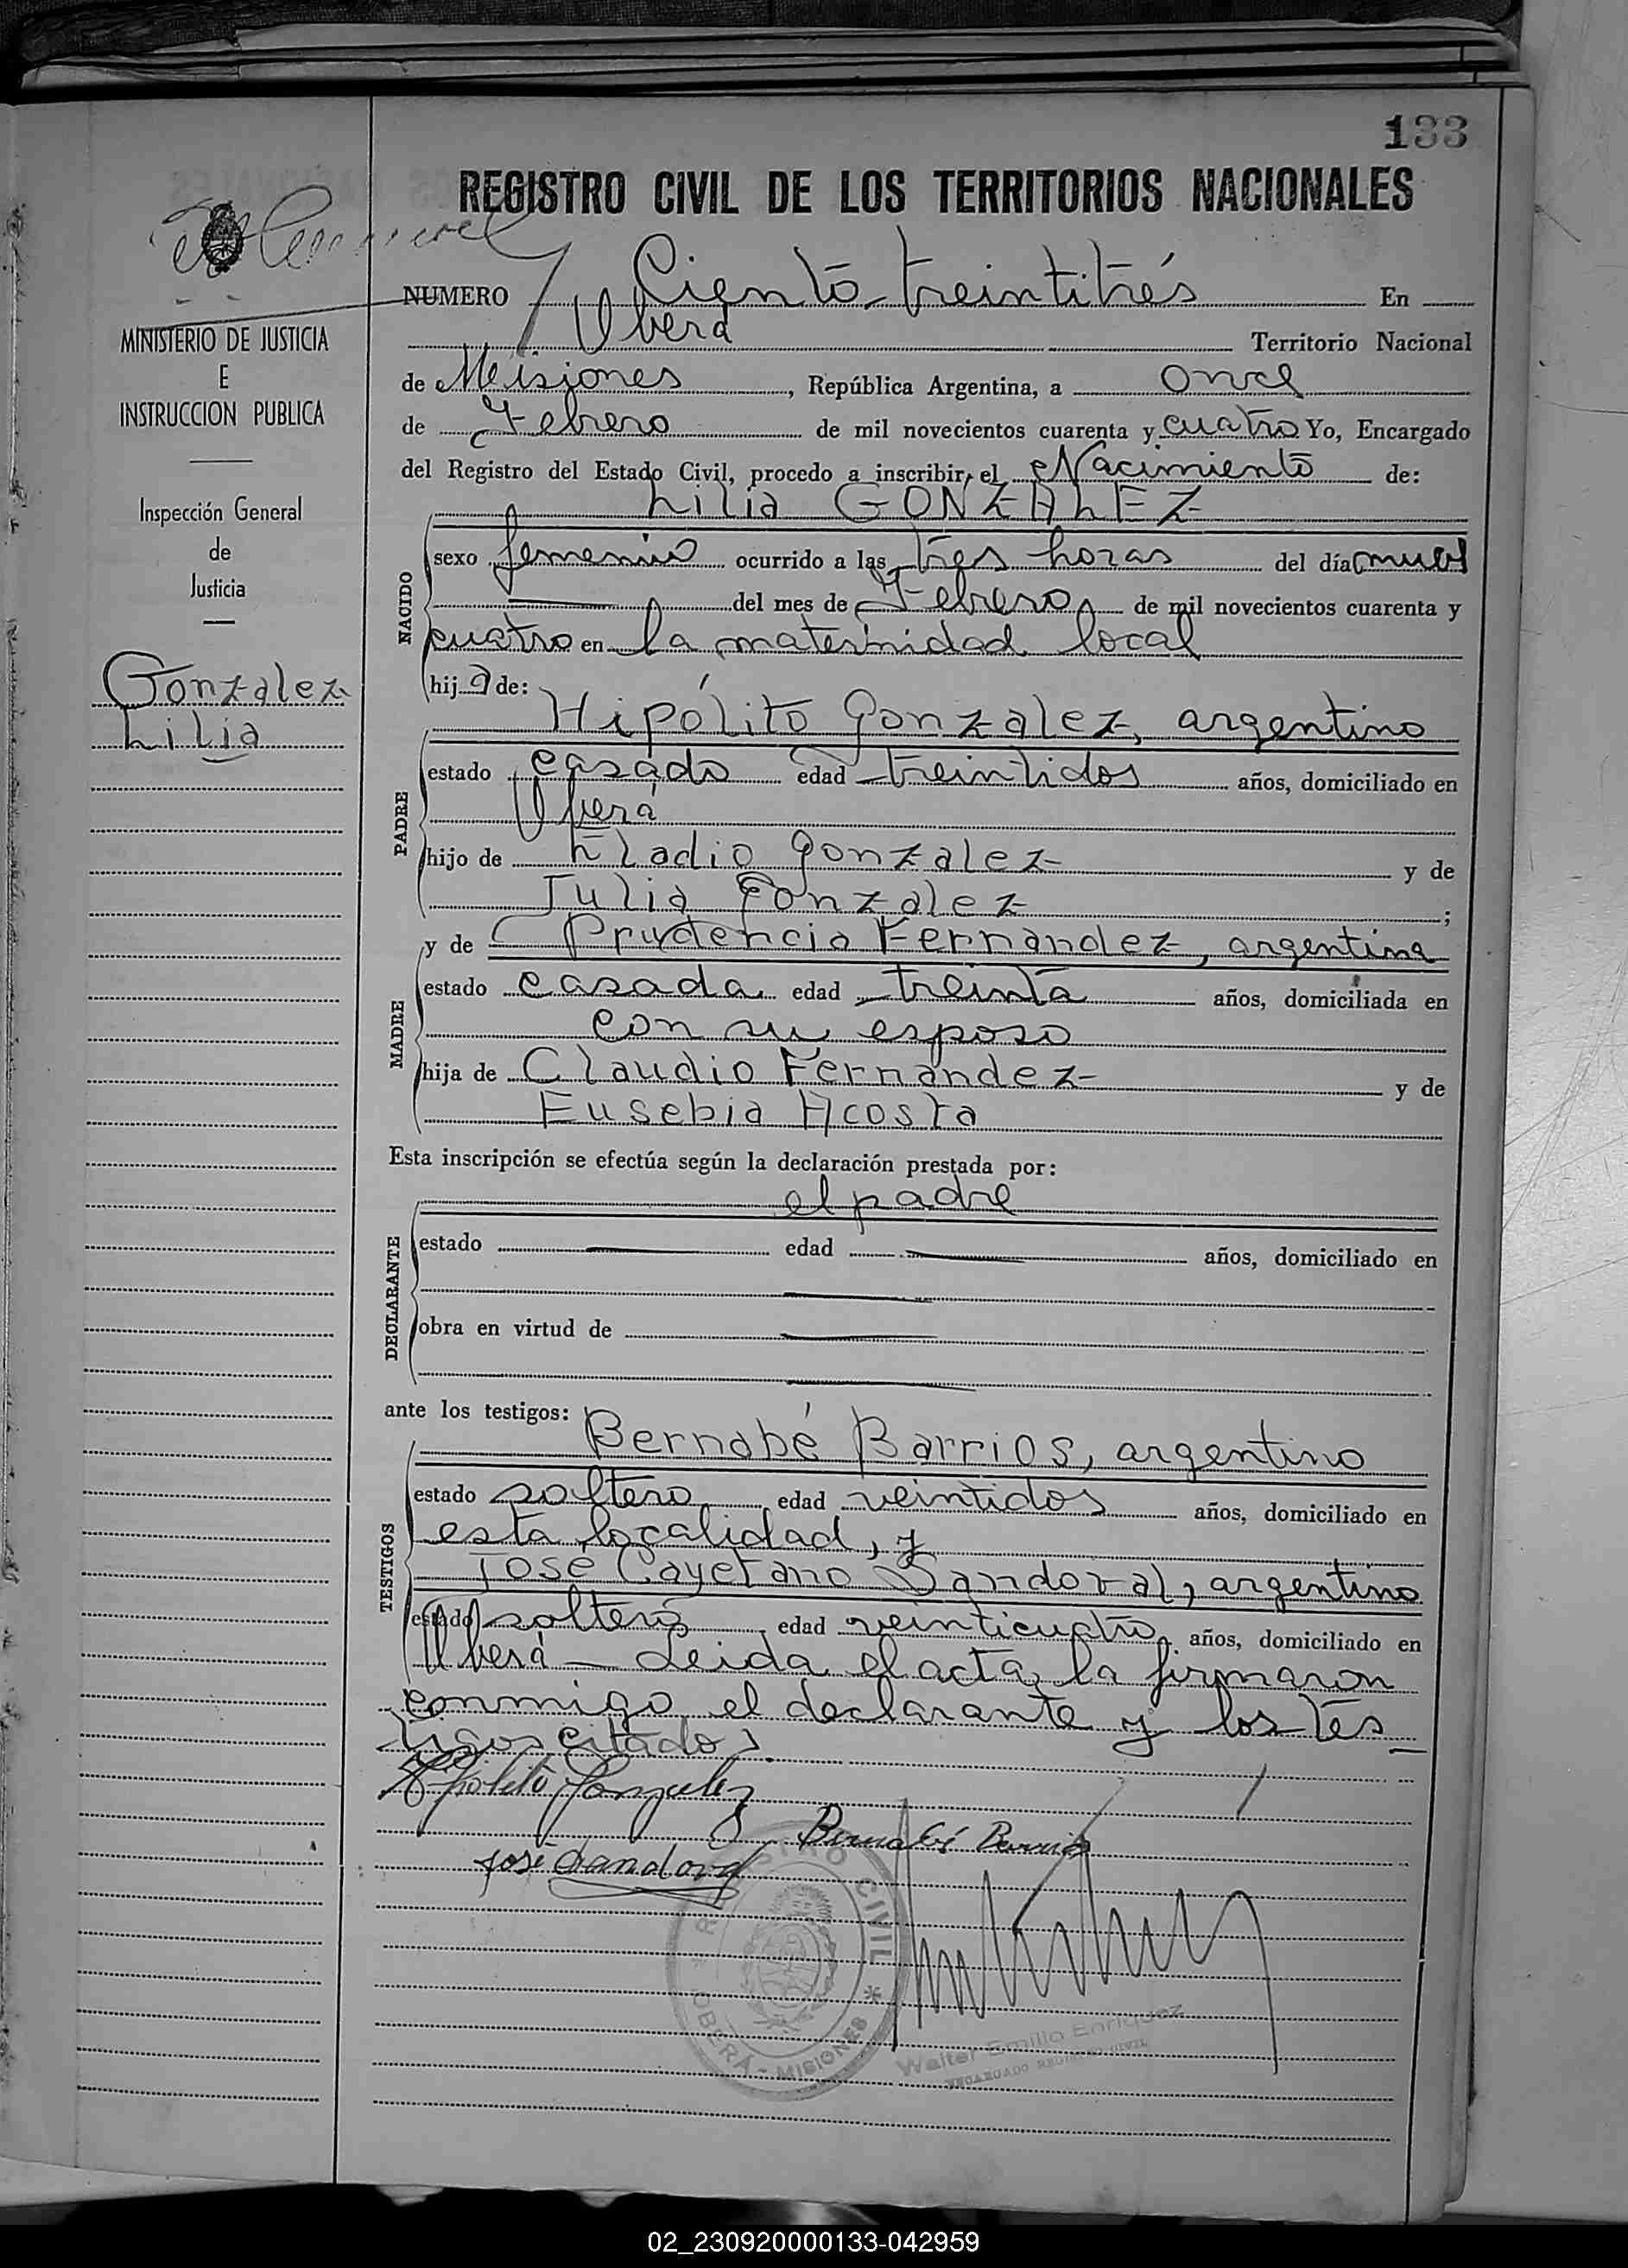 133
REGISTRO CIVIL DE LOS TERRITORIOS NACIONALES
NUMERO Ciento treintitrés En
Oberá Territorio Nacional
MINISTERIO DE JUSTICIA
E
INSTRUCCION PUBLICA
de Misiones, República Argentina, a once
de Febrero de mil novecientos cuarenta y cuatro Yo, Encargado
del Registro del Estado Civil, procedo a inscribir el Nacimiento de:
Inspección General
de
Justicia
Gonzalez
Lilia
Lilia GONZALEZ
NACIDO
sexo femenino ocurrido a las tres horas del día nueve
del mes de Febrero de mil novecientos cuarenta y
cuatro en la maternidad local
hija de:
Hipólito Gonzalez, argentino
PADRE
estado casado edad treintidos años, domiciliado en
Oberá
hijo de Eladio Gonzalez y de
Julia Gonzalez ;
y de Prudencia Fernandez, argentina
MADRE
estado casada edad treinta años, domiciliada en
con su esposo
hija de Claudio Fernandez y de
Eusebia Acosta
Esta inscripción se efectúa según la declaración prestada por:
el padre
DECLARANTE
estado edad años, domiciliado en
obra en virtud de
ante los testigos:
Bernabé Barrios, argentino
TESTIGOS
estado soltero edad veintidos años, domiciliado en
esta localidad, y
José Cayetano Sandoval, argentino
estado soltero edad veinticuatro años, domiciliado en
Oberá - Leida el acta, la firmaron
conmigo el declarante y los tes-
tigos citados.
Hipolito Gonzalez
Bernabé Barrios
José Sandoval
REGISTRO CIVIL * OBERÁ - MISIONES *
Walter Emilio Enriquez
ENCARGADO REGISTRO CIVIL
02_230920000133-042959